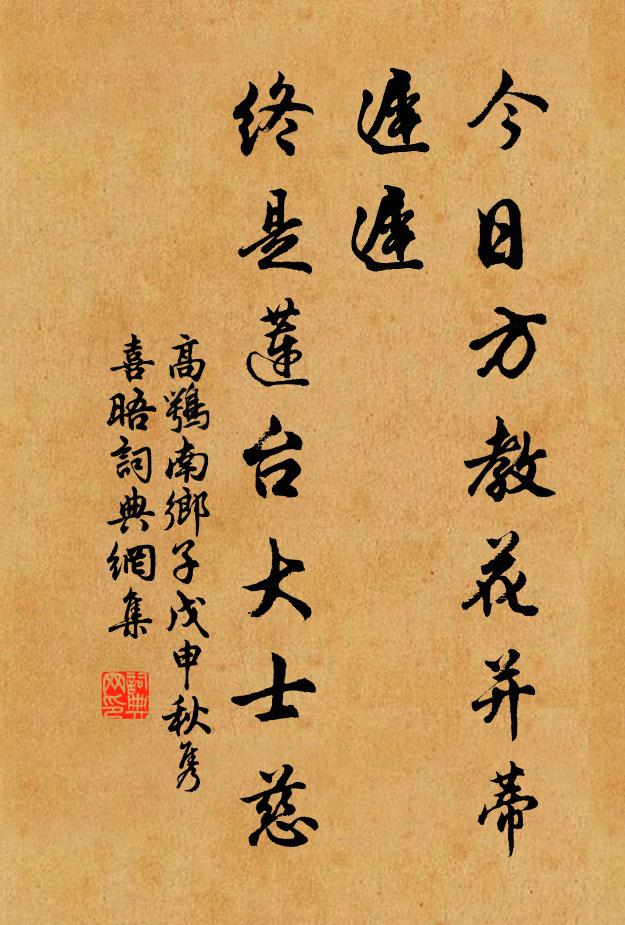 今日方教花并蒂
遲遲
終是蓮台大士慈
高鶚南鄉子戊申秋雋
喜晤詞典網集
詞典网印